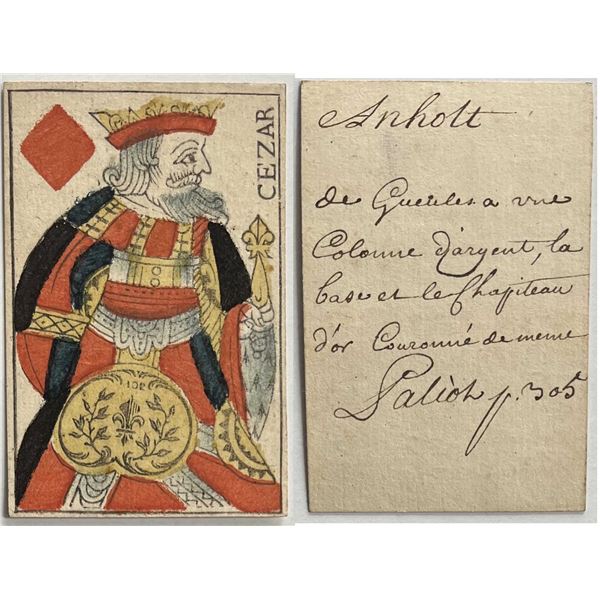 CEZAR
Anholt
de Gueules a une
Colonne d'argent, la
base et le Chapiteau
d'or Couronné de meme
Paliot p. 305